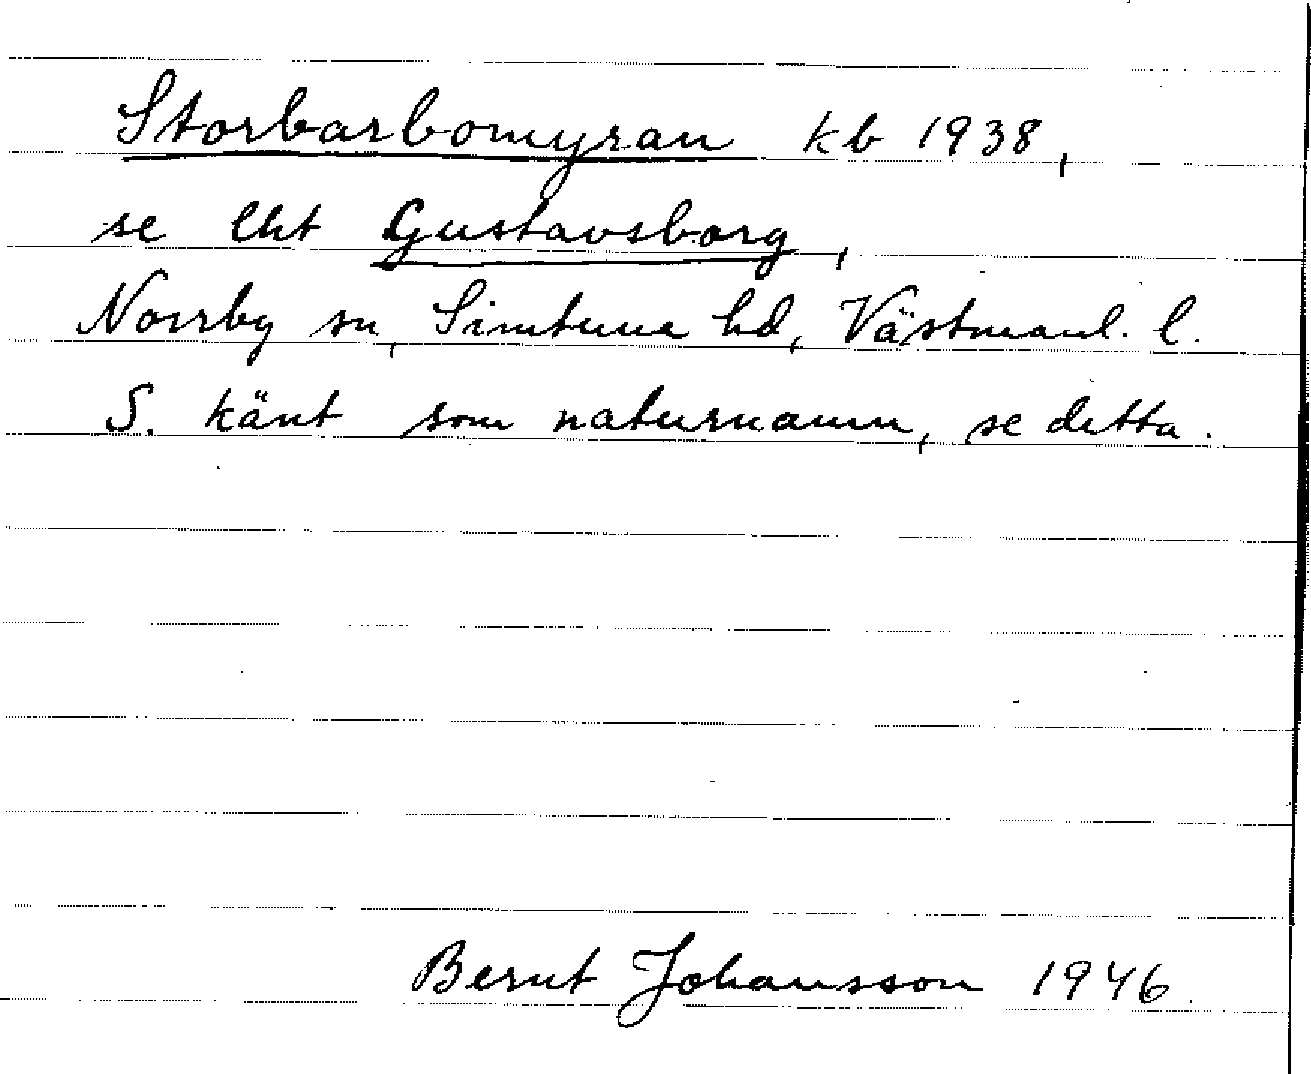 Storbarbomyran kb 1938,
se lht Gustavsborg,
Norrby sn, Simtuna hd, Västmanl. l.
S. känt som naturnamn, se detta.
Bernt Johansson 1946